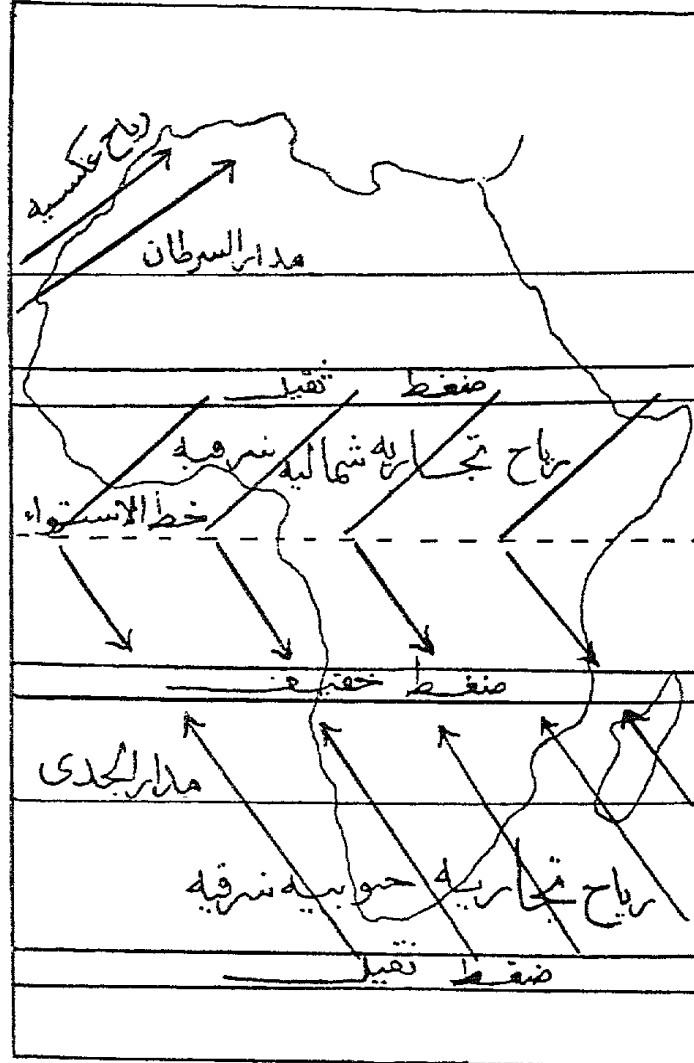 رياح عكسيه
مدار السرطان
ضغط ثقيل
رياح تجاريه شماليه شرقيه
خط الاستواء
ضغط خفيف
مدار الجدى
رياح تجاريه جنوبيه شرقيه
ضغط ثقيل